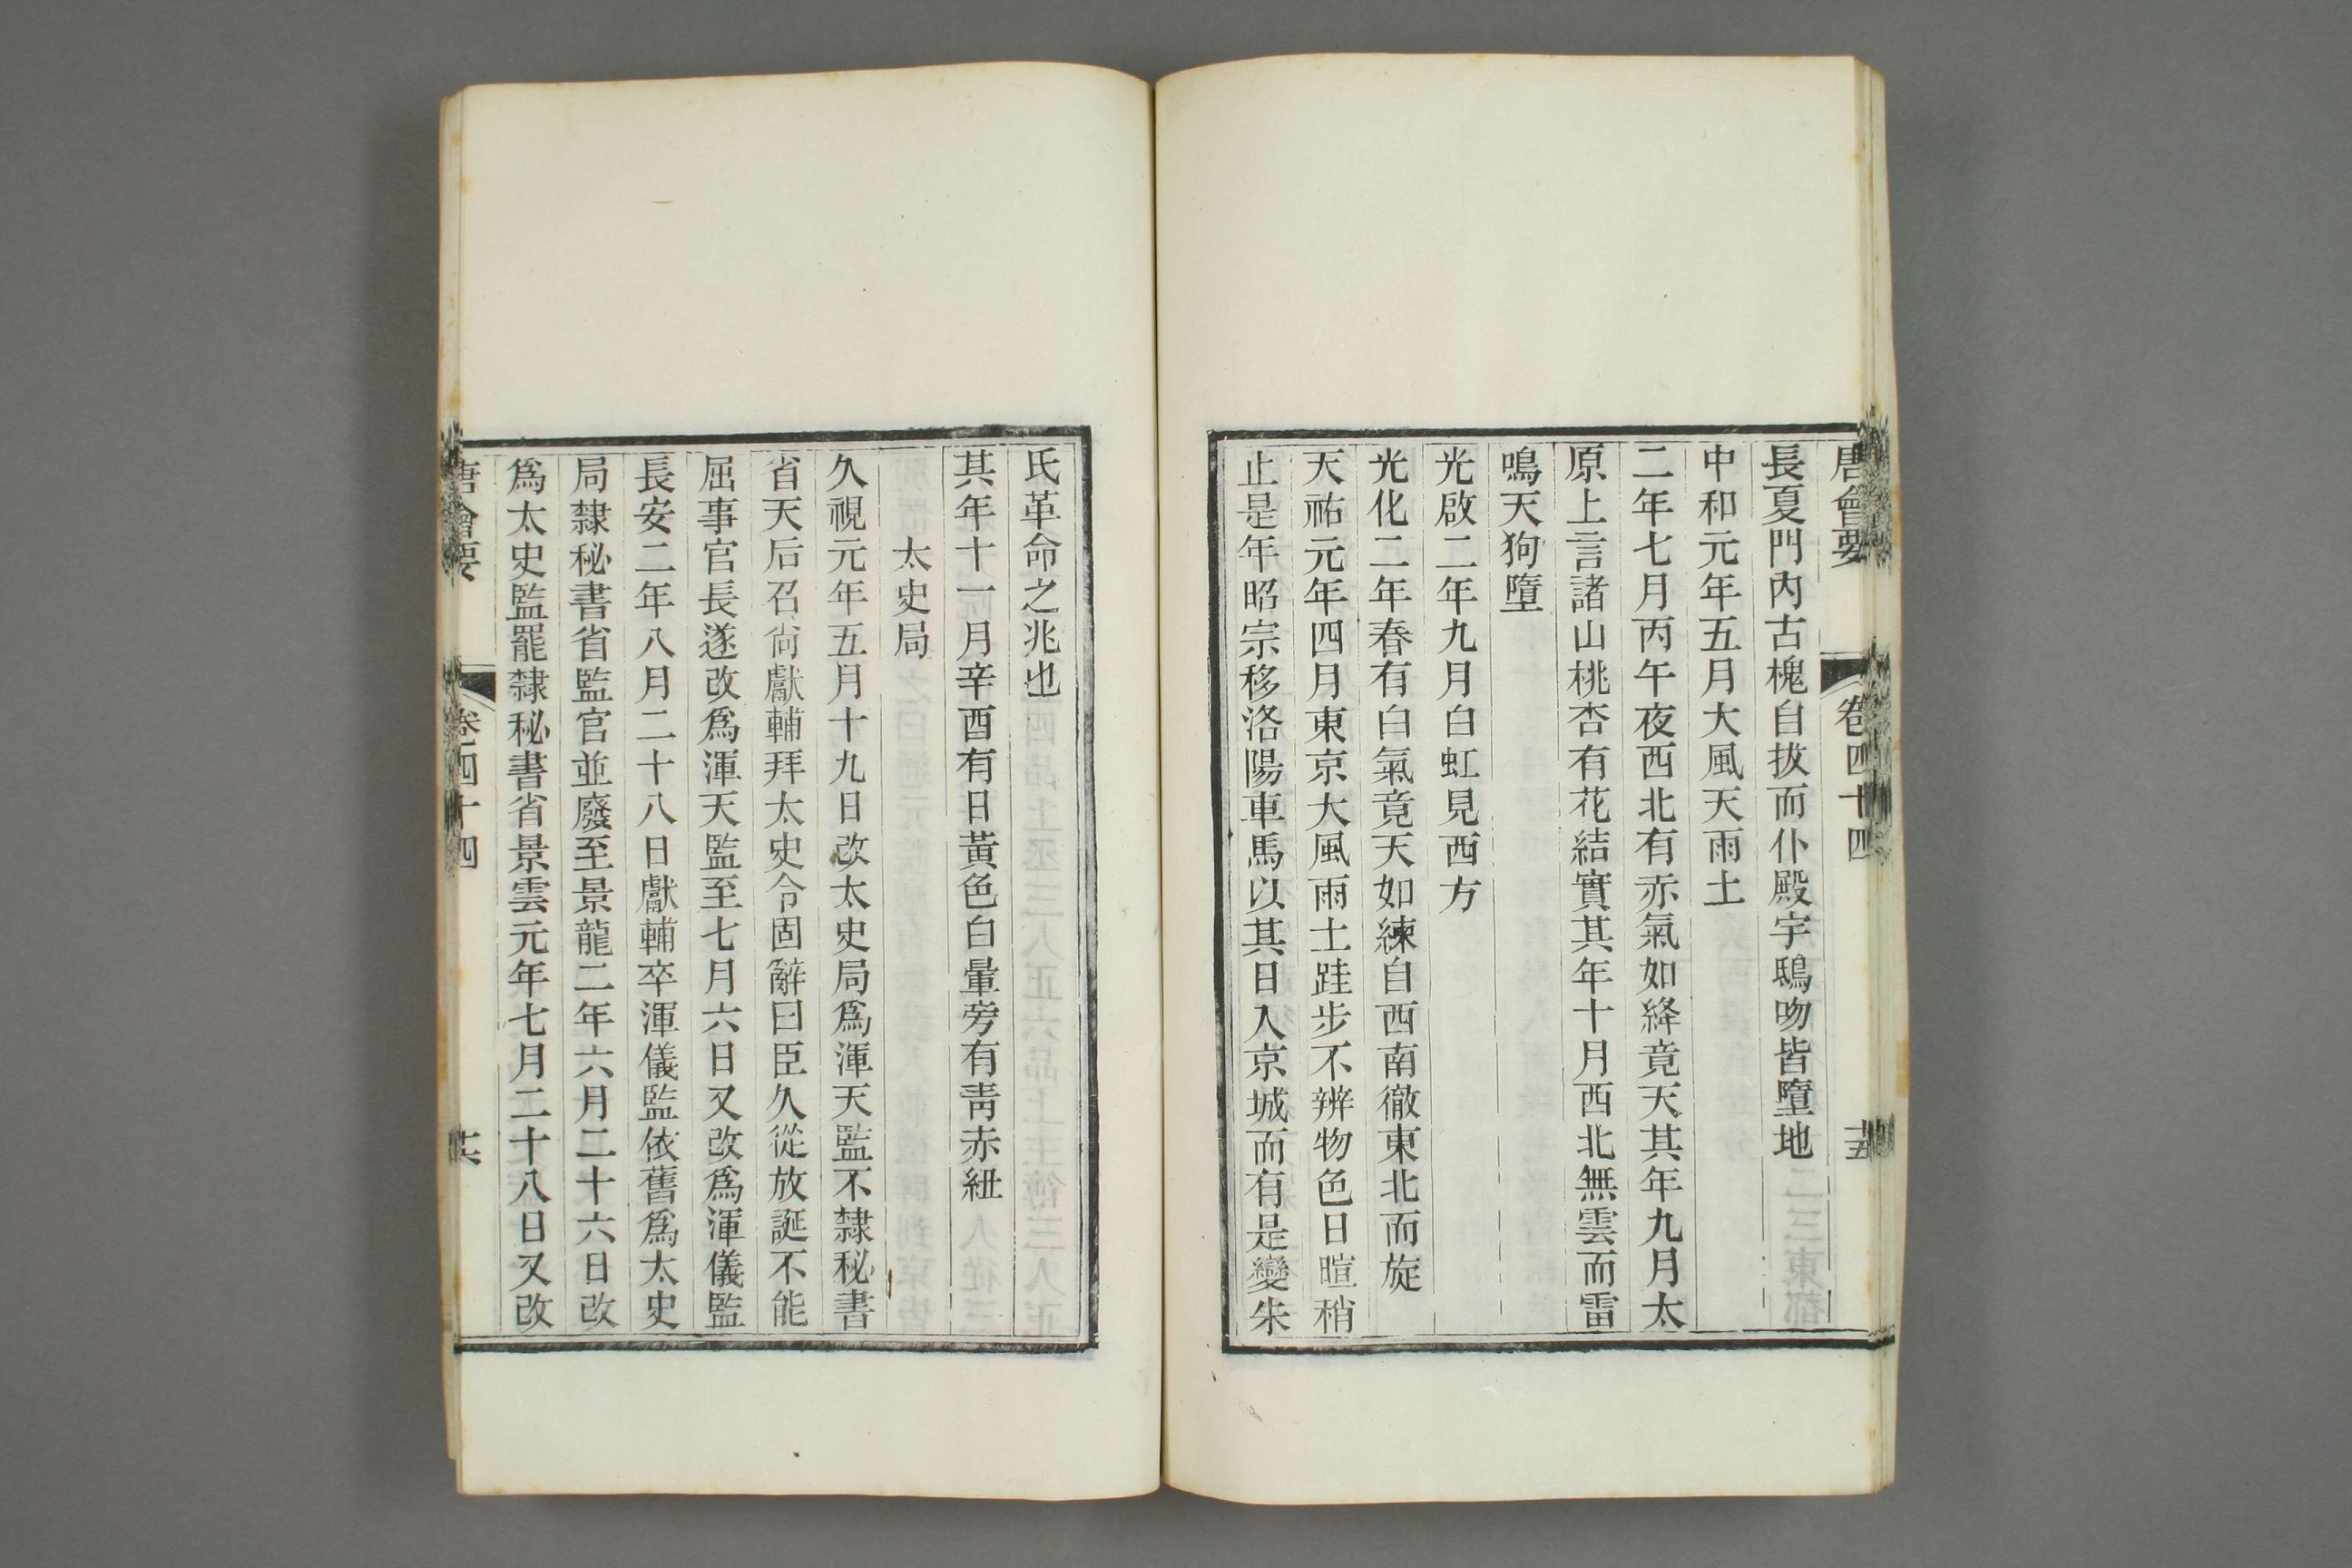 唐會要 卷四十四 十五
長夏門內古槐自拔而仆殿宇鴟吻皆墮地
中和元年五月大風天雨土
二年七月丙午夜西北有赤氣如絳竟天其年九月太
原上言諸山桃杏有花結實其年十月西北無雲而雷
鳴天狗墮
光啟二年九月白虹見西方
光化二年春有白氣竟天如練自西南徹東北而旋
天祐元年四月東京大風雨土跬步不辨物色日暄稍
止是年昭宗移洛陽車馬以其日入京城而有是變朱
氏革命之兆也
其年十一月辛酉有日黃色白暈旁有青赤紐
太史局
久視元年五月十九日改太史局爲渾天監不隸秘書
省天后召尚獻輔拜太史令固辭曰臣久從放誕不能
屈事官長遂改爲渾天監至七月六日又改爲渾儀監
長安二年八月二十八日獻輔卒渾儀監依舊爲太史
局隸秘書省監官並廢至景龍二年六月二十六日改
爲太史監罷隸秘書省景雲元年七月二十八日又改
唐會要 卷四十四 十六